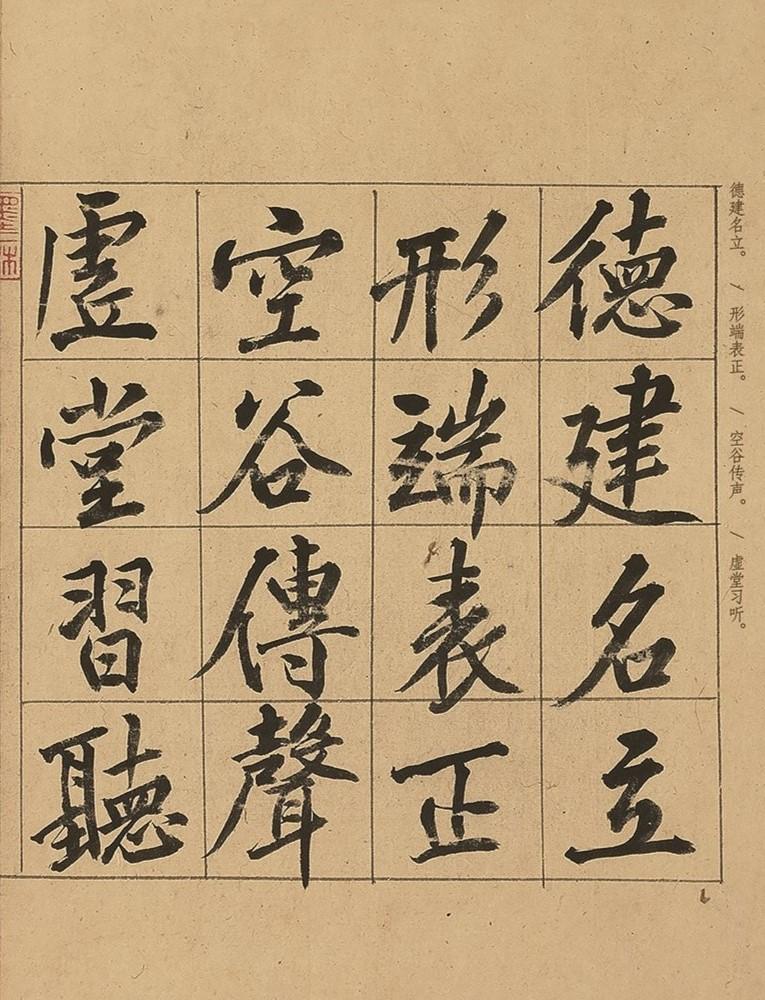 德建名立
形端表正
空谷傳聲
虛堂習聽
德建名立。 / 形端表正。 / 空谷传声。 / 虚堂习听。